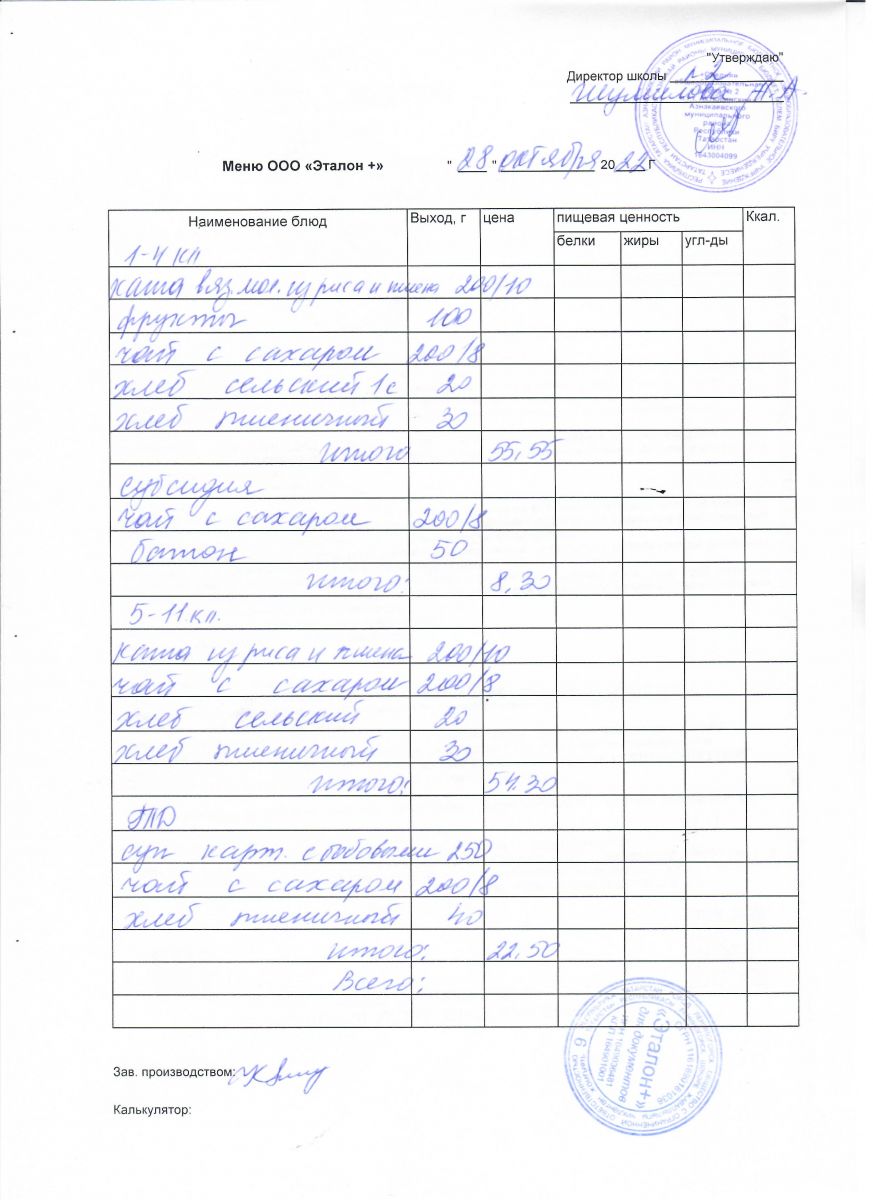 "Утверждаю"
Директор школы №2
Шумилова
Меню ООО «Эталон +» "28" октября 2022г
Наименование блюд Выход, г цена пищевая ценность Ккал.
белки жиры угл-ды
1-4 кл
каша вяз. мол. из риса и пшена 200/10
фрукты 100
чай с сахаром 200/8
хлеб сельский 1с 20
хлеб пшеничный 30
Итого 55,55
субсидия
чай с сахаром 200/8
батон 50
Итого: 8,30
5-11 кл.
каша из риса и пшена 200/10
чай с сахаром 200/8
хлеб сельский 20
хлеб пшеничный 30
Итого: 54.30
ГПД
суп карт. с бобовыми 250
чай с сахаром 200/8
хлеб пшеничный 40
Итого: 22.50
Всего:
«Эталон+»
Для документов
Зав. производством:
Калькулятор: